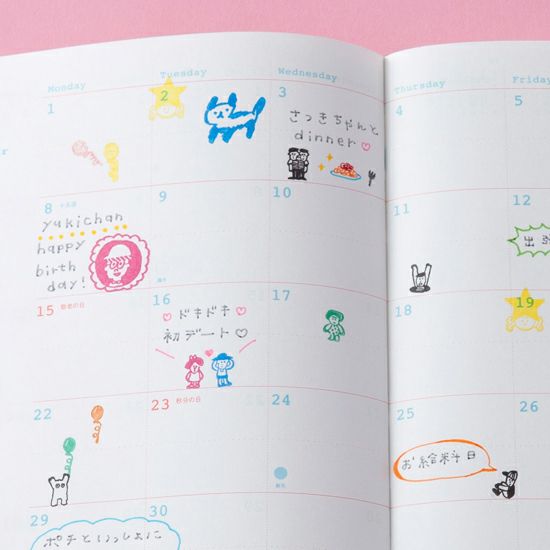 Monday
Tuesday
Wednesday
Thursday
Friday
1
2
3
さつきちゃんと
dinner♡
4
5
8
yukichan
happy
birth
day!
9
10
11
12
15 敬老の日
16
♡ドキドキ
初デート♡
17
18
19
22
23 秋分の日
24
25
お給料日
26
29
ポチといっしょに
30